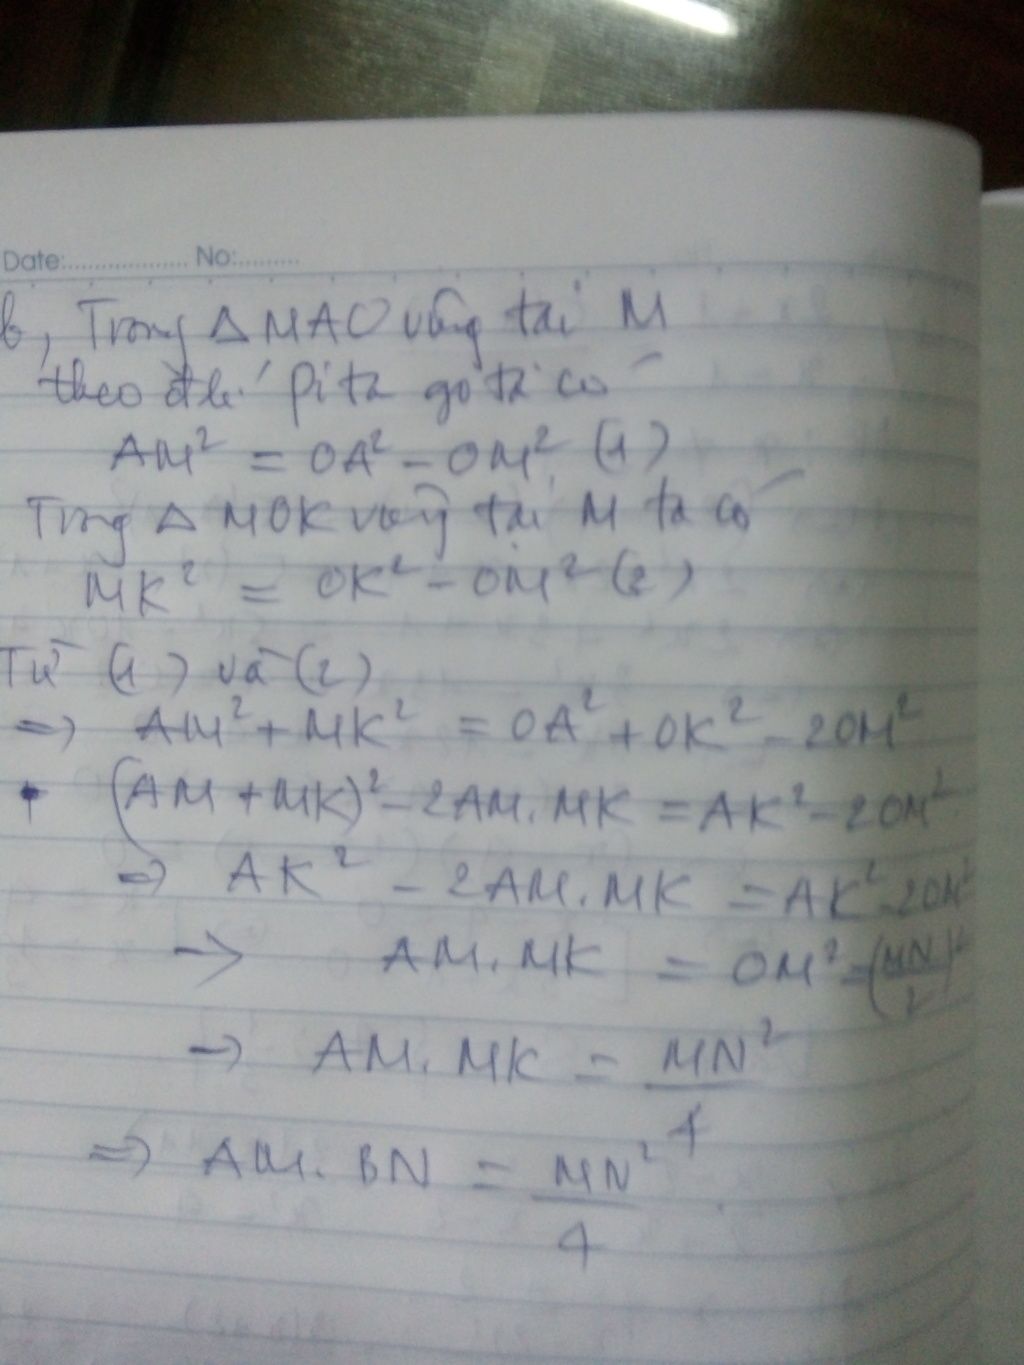 Date:.................. No:.........
b, Trong Δ MAO vuông tại M
theo đ.lí Pi ta go ta có
AM² = OA² - OM² (1)
Trong Δ MOK vuông tại M ta có
MK² = OK² - OM² (2)
Từ (1) và (2)
=> AM² + MK² = OA² + OK² - 2OM²
(AM + MK)² - 2AM.MK = AK² - 2OM²
=> AK² - 2AM.MK = AK² - 2OM²
-> AM.MK = OM² = (MN/2)²
-> AM.MK = MN²/4
=> AM.BN = MN²/4